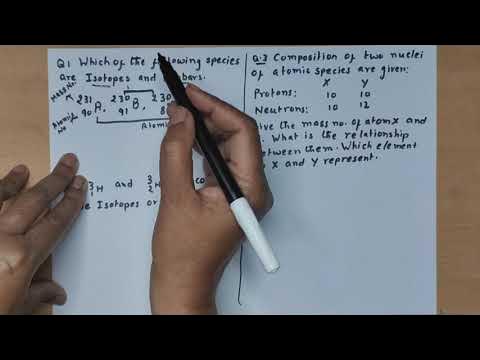 Q1 Which of the following species
are Isotopes and
Mass No.
231 90 A, 230 91 B, 230
Atomic No
Atomi
3 1 H and 3 2 H
Isotopes or
Q.3 Composition of two nuclei
of atomic species are given:
X Y
Protons: 10 10
Neutrons: 10 12
the mass no. of atom X and
What is the relationship
between them. Which element
X and Y represent.